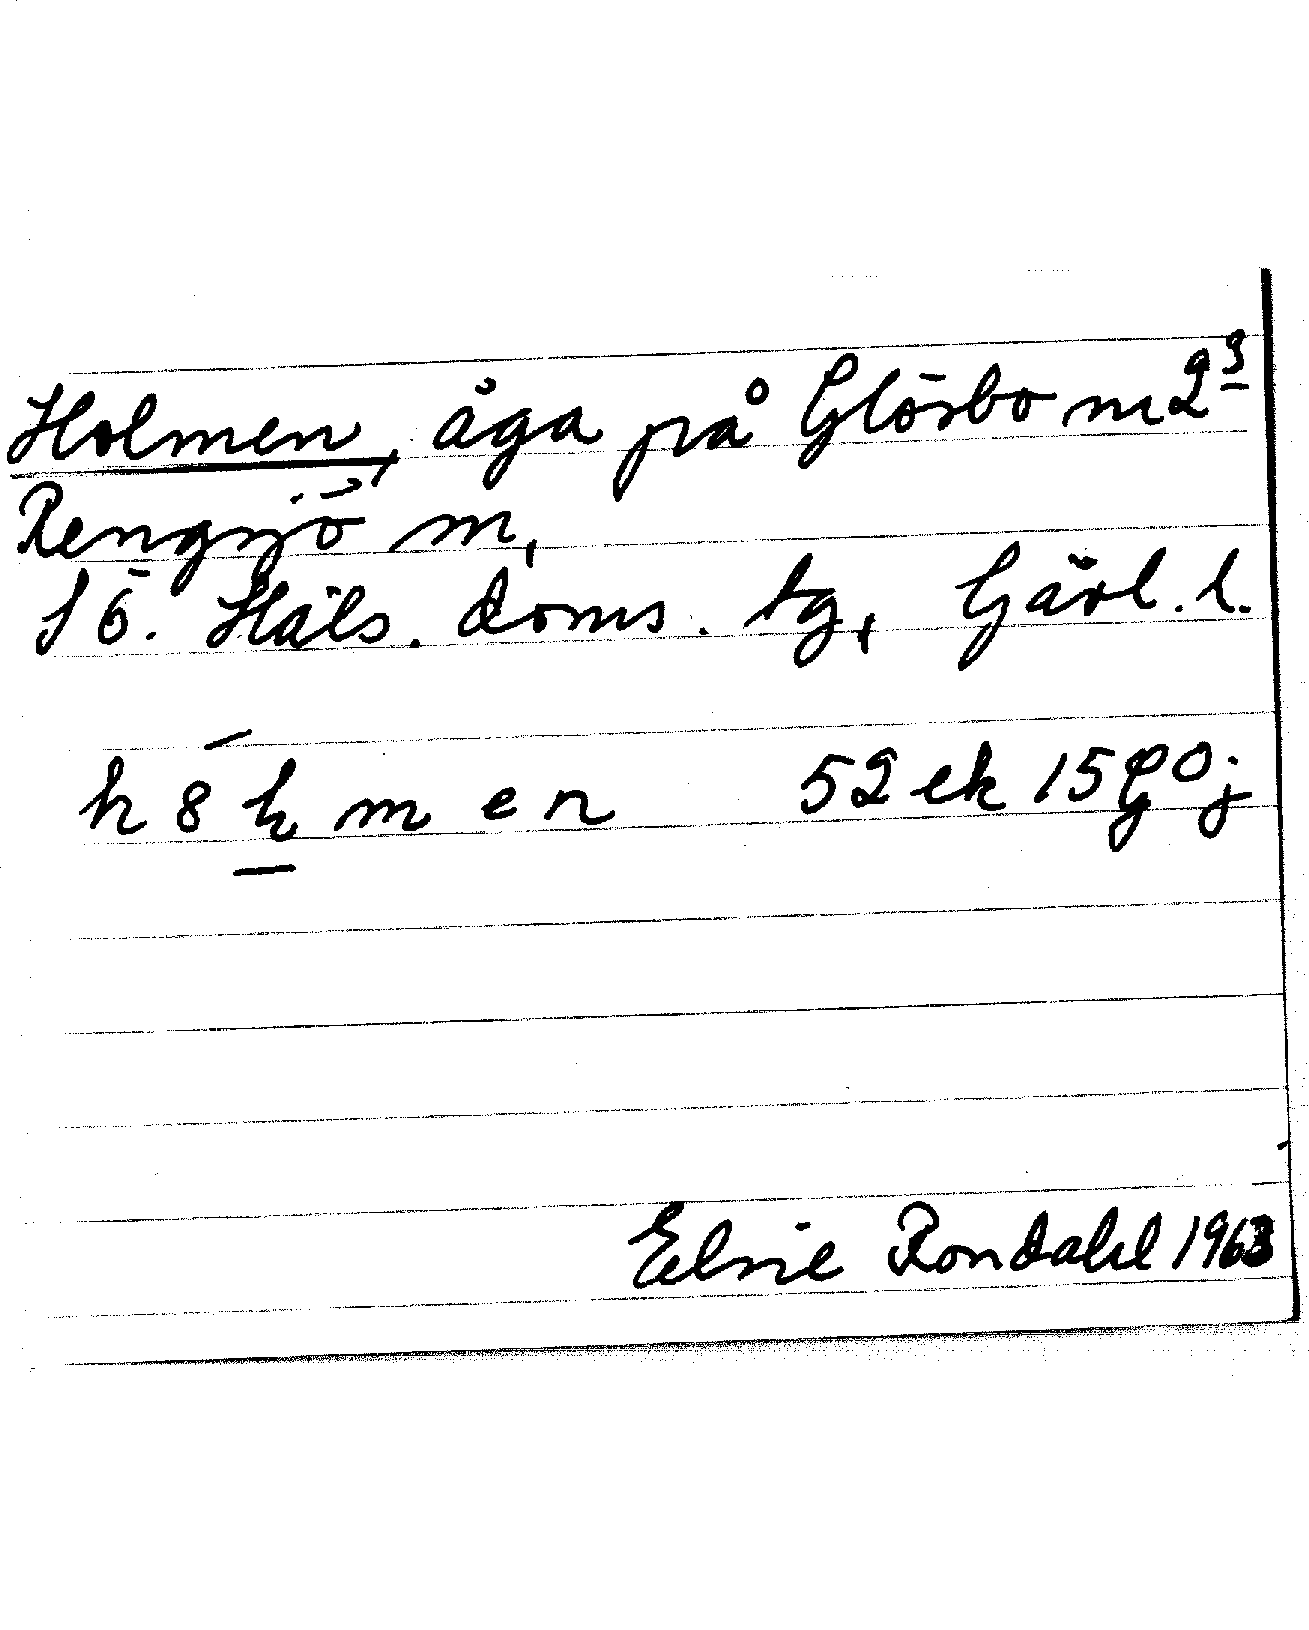 Holmen, äga på Glösbo m 2³
Rengsjö m,
S ö. Häls. doms. tg, Gävl. l.
h 8 h m e n 52 ek 15 G 0 j
Elsie Rondahl 1963